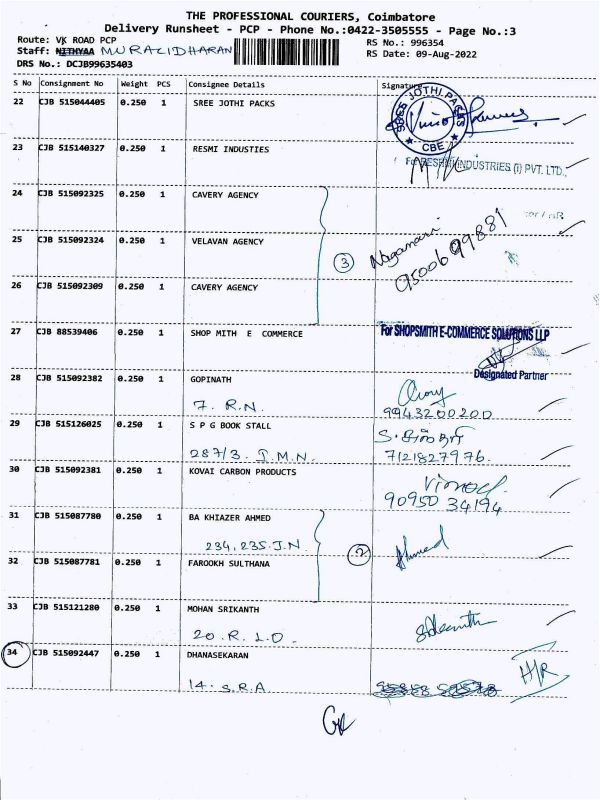 THE PROFESSIONAL COURIERS, Coimbatore
Delivery Runsheet - PCP - Phone No.:0422-3505555 - Page No.:3
Route: VK ROAD PCP
RS No.: 996354
Staff: NITHYAA MURALIDHARAN
RS Date: 09-Aug-2022
DRS No.: DCJB99635403
S No Consignment No Weight PCS Consignee Details Signature
22 CJB 515044405 0.250 1 SREE JOTHI PACKS
SREE JOTHI PACKS
CBE
23 CJB 515140327 0.250 1 RESMI INDUSTIES
For RESMI INDUSTRIES (I) PVT. LTD.,
24 CJB 515092325 0.250 1 CAVERY AGENCY
25 CJB 515092324 0.250 1 VELAVAN AGENCY
3
Nagamani
9500699881
26 CJB 515092309 0.250 1 CAVERY AGENCY
27 CJB 88539406 0.250 1 SHOP MITH E COMMERCE
For SHOPSMITH E-COMMERCE SOLUTIONS LLP
Designated Partner
28 CJB 515092382 0.250 1 GOPINATH
7. R.N.
9943200200
29 CJB 515126025 0.250 1 S P G BOOK STALL
287/3. T.M.N.
7121827976.
30 CJB 515092381 0.250 1 KOVAI CARBON PRODUCTS
Vinod.
90950 34194
31 CJB 515087780 0.250 1 BA KHIAZER AHMED
234,235.J.N
2
Ahmed
32 CJB 515087781 0.250 1 FAROOKH SULTHANA
33 CJB 515121280 0.250 1 MOHAN SRIKANTH
20. R. L.O.
34 CJB 515092447 0.250 1 DHANASEKARAN
14. S.R.A
H/R